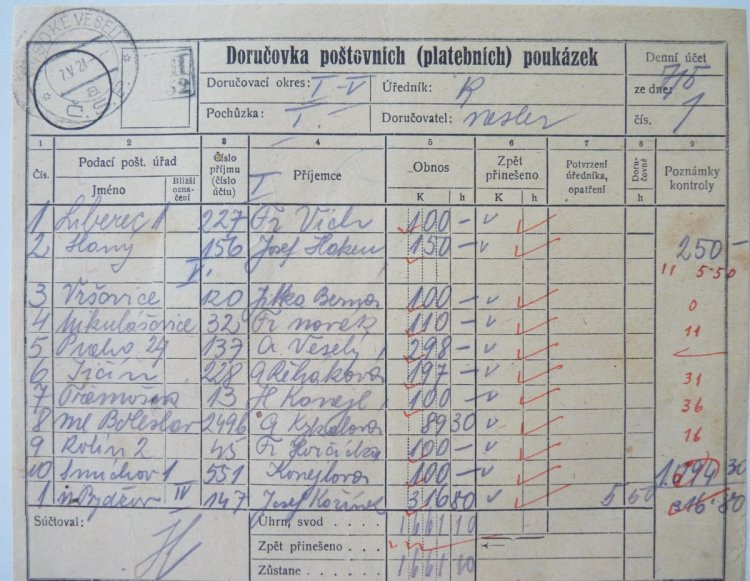 VYSOKÉ VESELÍ
7 V 21
Doručovka poštovních (platebních) poukázek
Doručovací okres: I-V
Úředník: R
Pochůzka: I.
Doručovatel: Nesler
Denní účet
ze dne: 7/5
čís. 1
1 2 3 4 5 6 7 8 9
Čís. Podací pošt. úřad Číslo příjmu (číslo účtu) Příjemce Obnos Zpět přinešeno Potvrzení úředníka, opatření Doručovné Poznámky kontroly
Jméno Bližší označení K h K h h
I
1 Liberec 1 227 Fr. Vich 100 — v
2 Slaný 156 Josef Haken 150 — v 250 —
V. 11 5·50
3 Vršovice 120 100 — v 0
4 Mikulášovice 32 Fr Novák 110 — v 11
5 Praha 27 137 A Veselý 298 — v
6 Jičín 228 197 — v 31
7 13 H Konejl 100 — v 36
8 Ml Boleslav 2496 89 30 v 16
9 Kolín 2 45 Fr 100 — v
10 Smíchov 1 551 Konejlova 100 — v 1.094 30
1 N Bydžov IV 147 Josef Kořínek 316 80 v 5 50 316·80
Súčtoval:
Úhrn, svod . . . . 1661 10
Zpět přinešeno . . . .
Zůstane . . . . 1661 10